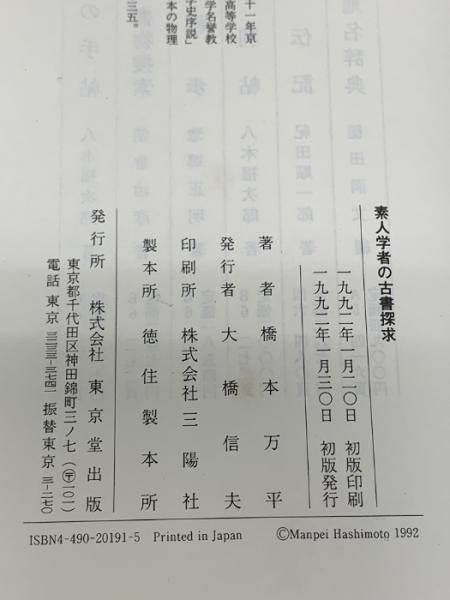 十一年京
高等学校
学名誉教
史序説」
本の物理
三五。
素人学者の古書探求
一九九二年一月二〇日 初版印刷
一九九二年一月三〇日 初版発行
著者 橋本万平
発行者 大橋信夫
印刷所 株式会社三陽社
製本所 徳住製本所
発行所 株式会社 東京堂出版
東京都千代田区神田錦町三ノ七(〒一〇一)
電話 東京 三二三三-三七四一 振替東京 三-二七〇
ISBN4-490-20191-5 Printed in Japan ©Manpei Hashimoto 1992